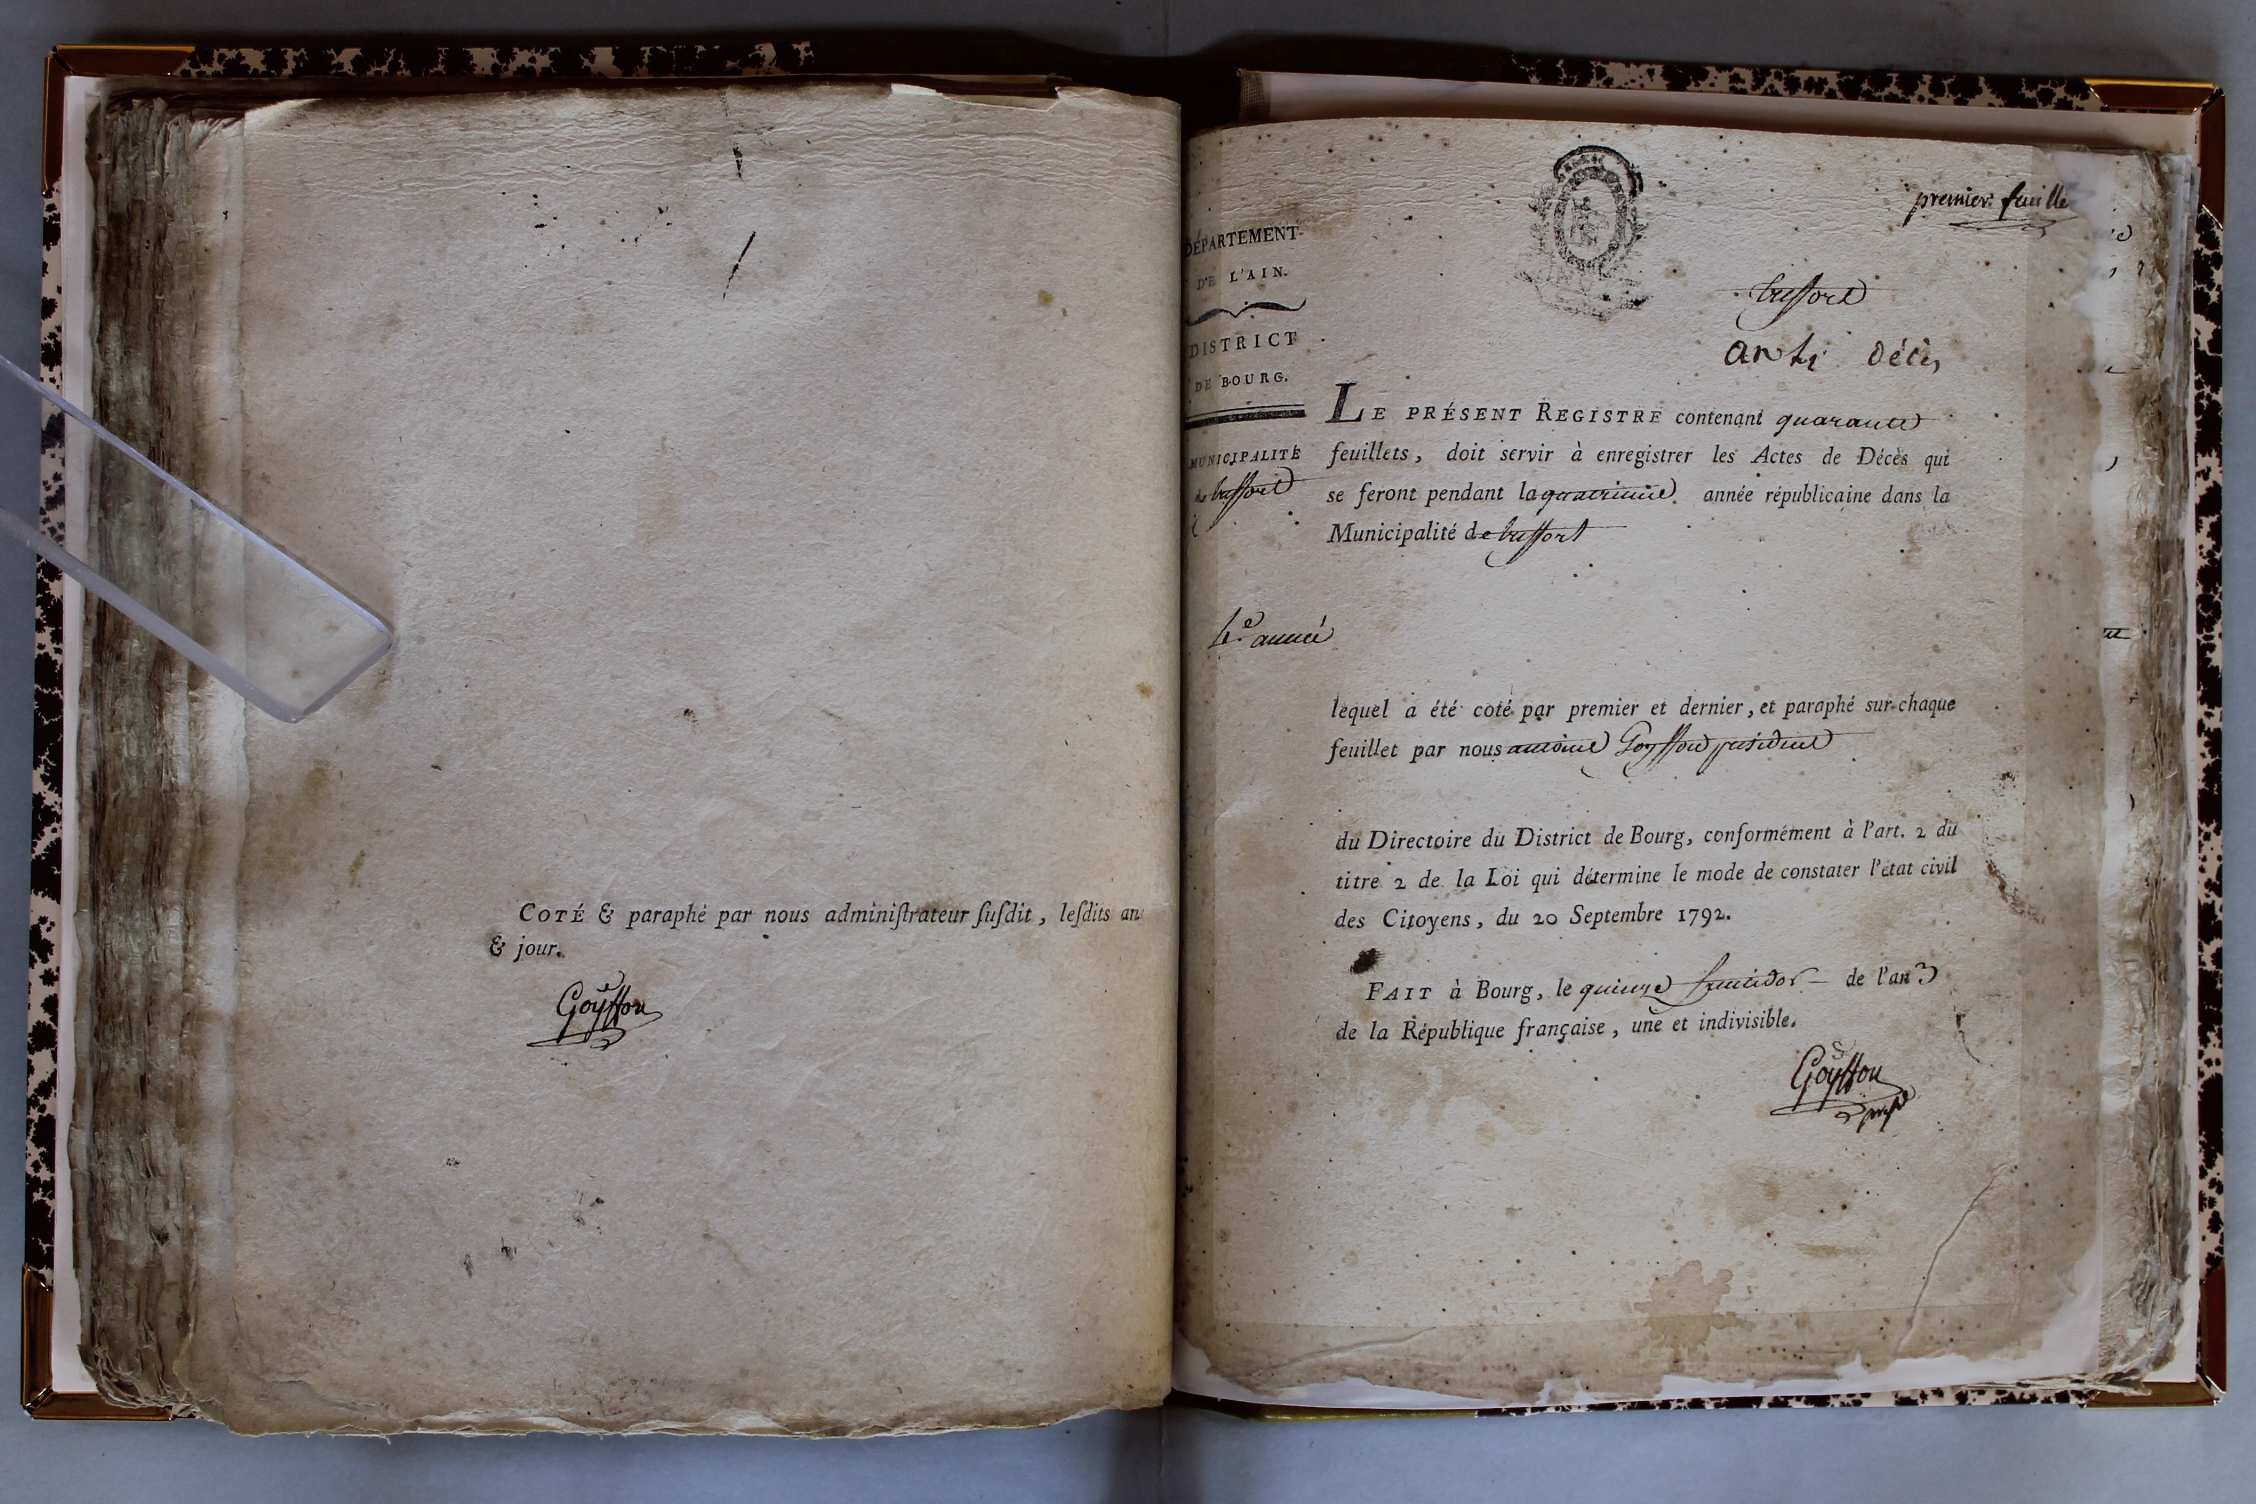 COTÉ & paraphé par nous adminiſtrateur ſuſdit, leſdits an
& jour.
Goÿffon
premier feuille
DÉPARTEMENT
DE L'AIN.
DISTRICT
DE BOURG.
MUNICIPALITÉ
de treffort
treffort
an 4 Décès
LE PRÉSENT REGISTRE contenant quarante
feuillets, doit servir à enregistrer les Actes de Décès qui
se feront pendant la quatrieme année républicaine dans la
Municipalité de treffort
4.e année
lequel a été coté par premier et dernier, et paraphé sur chaque
feuillet par nous antoine Goÿffon president
du Directoire du District de Bourg, conformément à l'art. 2 du
titre 2 de la Loi qui détermine le mode de constater l'état civil
des Citoyens, du 20 Septembre 1792.
FAIT à Bourg, le quinze fructidor de l'an 3
de la République française, une et indivisible.
Goÿffon